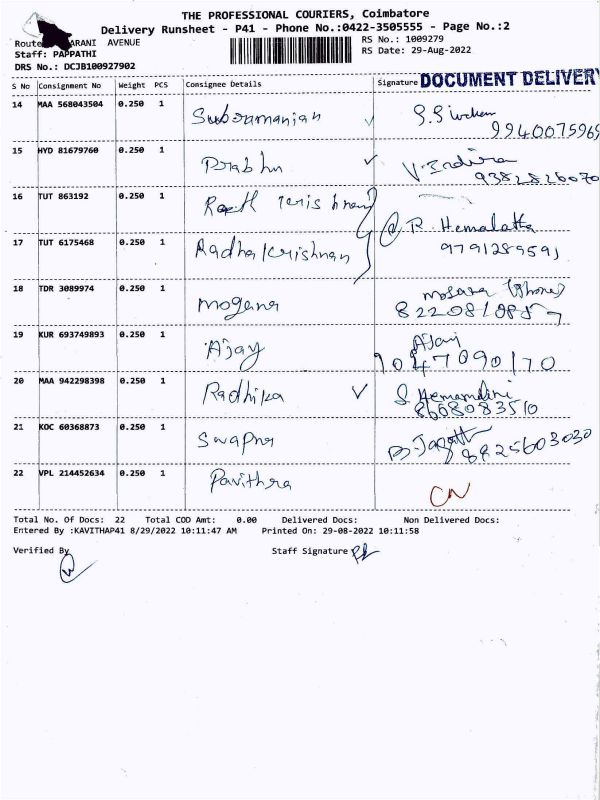 THE PROFESSIONAL COURIERS, Coimbatore
Delivery Runsheet - P41 - Phone No.:0422-3505555 - Page No.:2
Route ARANI AVENUE
RS No.: 1009279
Staff: PAPPATHI
RS Date: 29-Aug-2022
DRS No.: DCJB100927902
S No Consignment No Weight PCS Consignee Details Signature DOCUMENT DELIVERY
14 MAA 568043504 0.250 1 Subramanian
9940075969
15 HYD 81679760 0.250 1 Prabhu V. Indira
9382826070
16 TUT 863192 0.250 1 Krishnan R. Hemalatha
17 TUT 6175468 0.250 1 Radha Krishnan 9791289591
18 TDR 3089974 0.250 1 mogana (Phone)
19 KUR 693749893 0.250 1 Ajay Ajay
9047090170
20 MAA 942298398 0.250 1 Radhika S. Hemamalini
8668083510
21 KOC 60368873 0.250 1 Swapna
8825603030
22 VPL 214452634 0.250 1 Pavithra CN
Total No. Of Docs: 22 Total COD Amt: 0.00 Delivered Docs: Non Delivered Docs:
Entered By :KAVITHAP41 8/29/2022 10:11:47 AM Printed On: 29-08-2022 10:11:58
Verified By Staff Signature